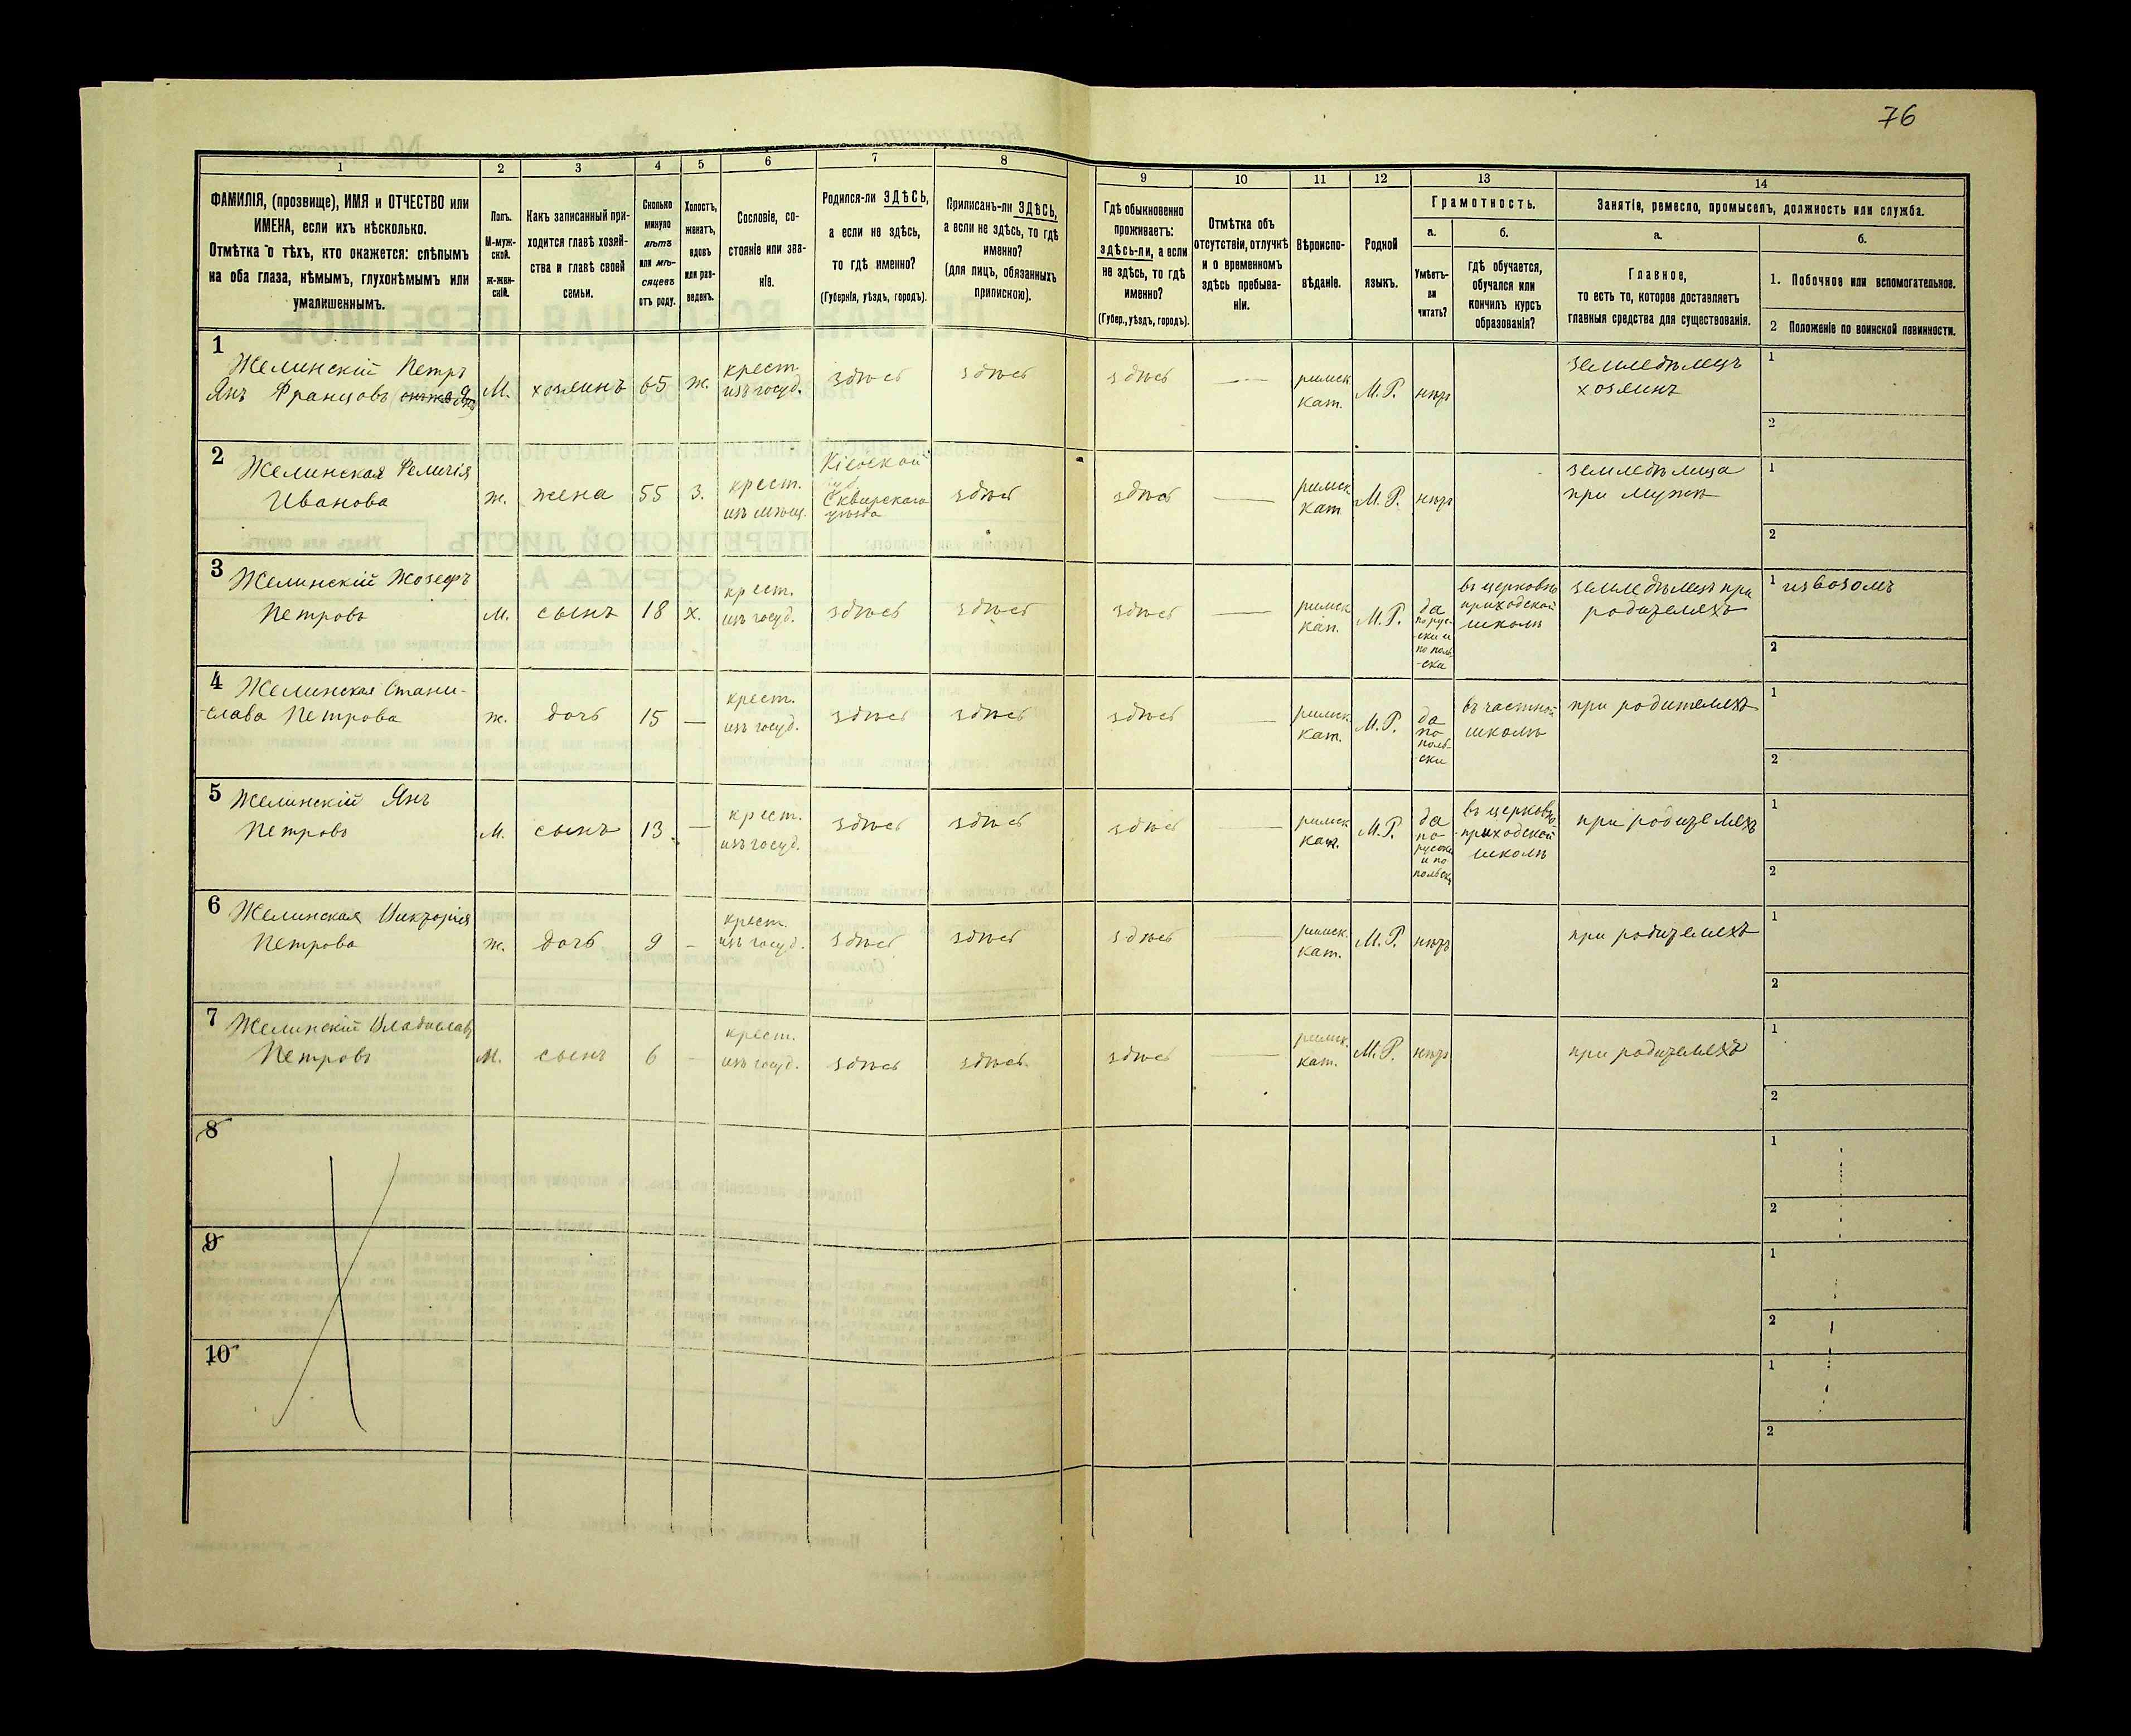 76
1
2
3
4
5
6
7
8
9
10
11
12
13
14
ФАМИЛІЯ, (прозвище), ИМЯ и ОТЧЕСТВО или
ИМЕНА, если ихъ нѣсколько.
Отмѣтка о тѣхъ, кто окажется: слѣпымъ
на оба глаза, нѣмымъ, глухонѣмымъ или
умалишеннымъ.
Полъ.
М-муж-
ской.
ж-жен-
скій.
Какъ записанный при-
ходится главѣ хозяй-
ства и главѣ своей
семьи.
Сколько
минуло
лѣтъ
или мѣ-
сяцевъ
отъ роду.
Холостъ,
женатъ,
вдовъ
или раз-
веденъ.
Сословіе, со-
стояніе или зва-
ніе.
Родился-ли ЗДѢСЬ,
а если не здѣсь,
то гдѣ именно?
(Губернія, уѣздъ, городъ).
Приписанъ-ли ЗДѢСЬ,
а если не здѣсь, то гдѣ
именно?
(для лицъ, обязанныхъ
припискою).
Гдѣ обыкновенно
проживаетъ:
здѣсь-ли, а если
не здѣсь, то гдѣ
именно?
(Губер., уѣздъ, городъ).
Отмѣтка объ
отсутствіи, отлучкѣ
и о временномъ
здѣсь пребыва-
ніи.
Вѣроиспо-
вѣданіе.
Родной
языкъ.
Грамотность.
а.
Умѣетъ-
ли
читать?
б.
гдѣ обучается,
обучался или
кончилъ курсъ
образованія?
Занятіе, ремесло, промыселъ, должность или служба.
а.
Главное,
то есть то, которое доставляетъ
главныя средства для существованія.
б.
1. Побочное или вспомогательное.
2 Положеніе по воинской повинности.
1
Желинскій Петръ
Янъ Францовъ
М.
хозяинъ
65
ж.
крест.
изъ госуд.
здѣсь
здѣсь
здѣсь
—
римск
кат.
М.Р.
нѣтъ
земледѣлецъ
хозяинъ
1
2
2
Желинская Фелиція
Иванова
ж.
жена
55
З.
крест.
изъ мѣщ.
Кіевской
губ.
Сквирскаго
уѣзда
здѣсь
здѣсь
—
римск
кат
М.Р.
нѣтъ
земледѣлица
при мужѣ
1
2
3
Желинскій Жозефъ
Петровъ
М.
сынъ
18
х.
крест.
изъ госуд.
здѣсь
здѣсь
здѣсь
—
римск
кат.
М.Р.
да
по рус-
-ски и
по поль-
-ски
въ церковно
приходской
школѣ
земледѣлецъ при
родителяхъ
1 извозомъ
2
4
Желинская Стани-
-слава Петрова
ж.
дочь
15
—
крест.
изъ госуд.
здѣсь
здѣсь
здѣсь
—
римск
кат.
М.Р.
да
по
поль-
ски
въ частной
школѣ
при родителяхъ
1
2
5
Желинскій Янъ
Петровъ
М.
сынъ
13
—
крест.
изъ госуд.
здѣсь
здѣсь
здѣсь
—
римск
кат.
М.Р.
да
по
русски
и по
польски
въ церковно
приходской
школѣ
при родителяхъ
1
2
6
Желинская Викторія
Петрова
ж.
дочь
9
-
крест.
изъ госуд.
здѣсь
здѣсь
здѣсь
—
римск.
кат.
М.Р.
нѣтъ
при родителяхъ
1
2
7
Желинскій Владиславъ
Петровъ
М.
сынъ
6
-
крест.
изъ госуд.
здѣсь
здѣсь
здѣсь
—
римск.
кат.
М.Р.
нѣтъ
при родителяхъ
1
2
8
1
2
9
1
2
10
1
2